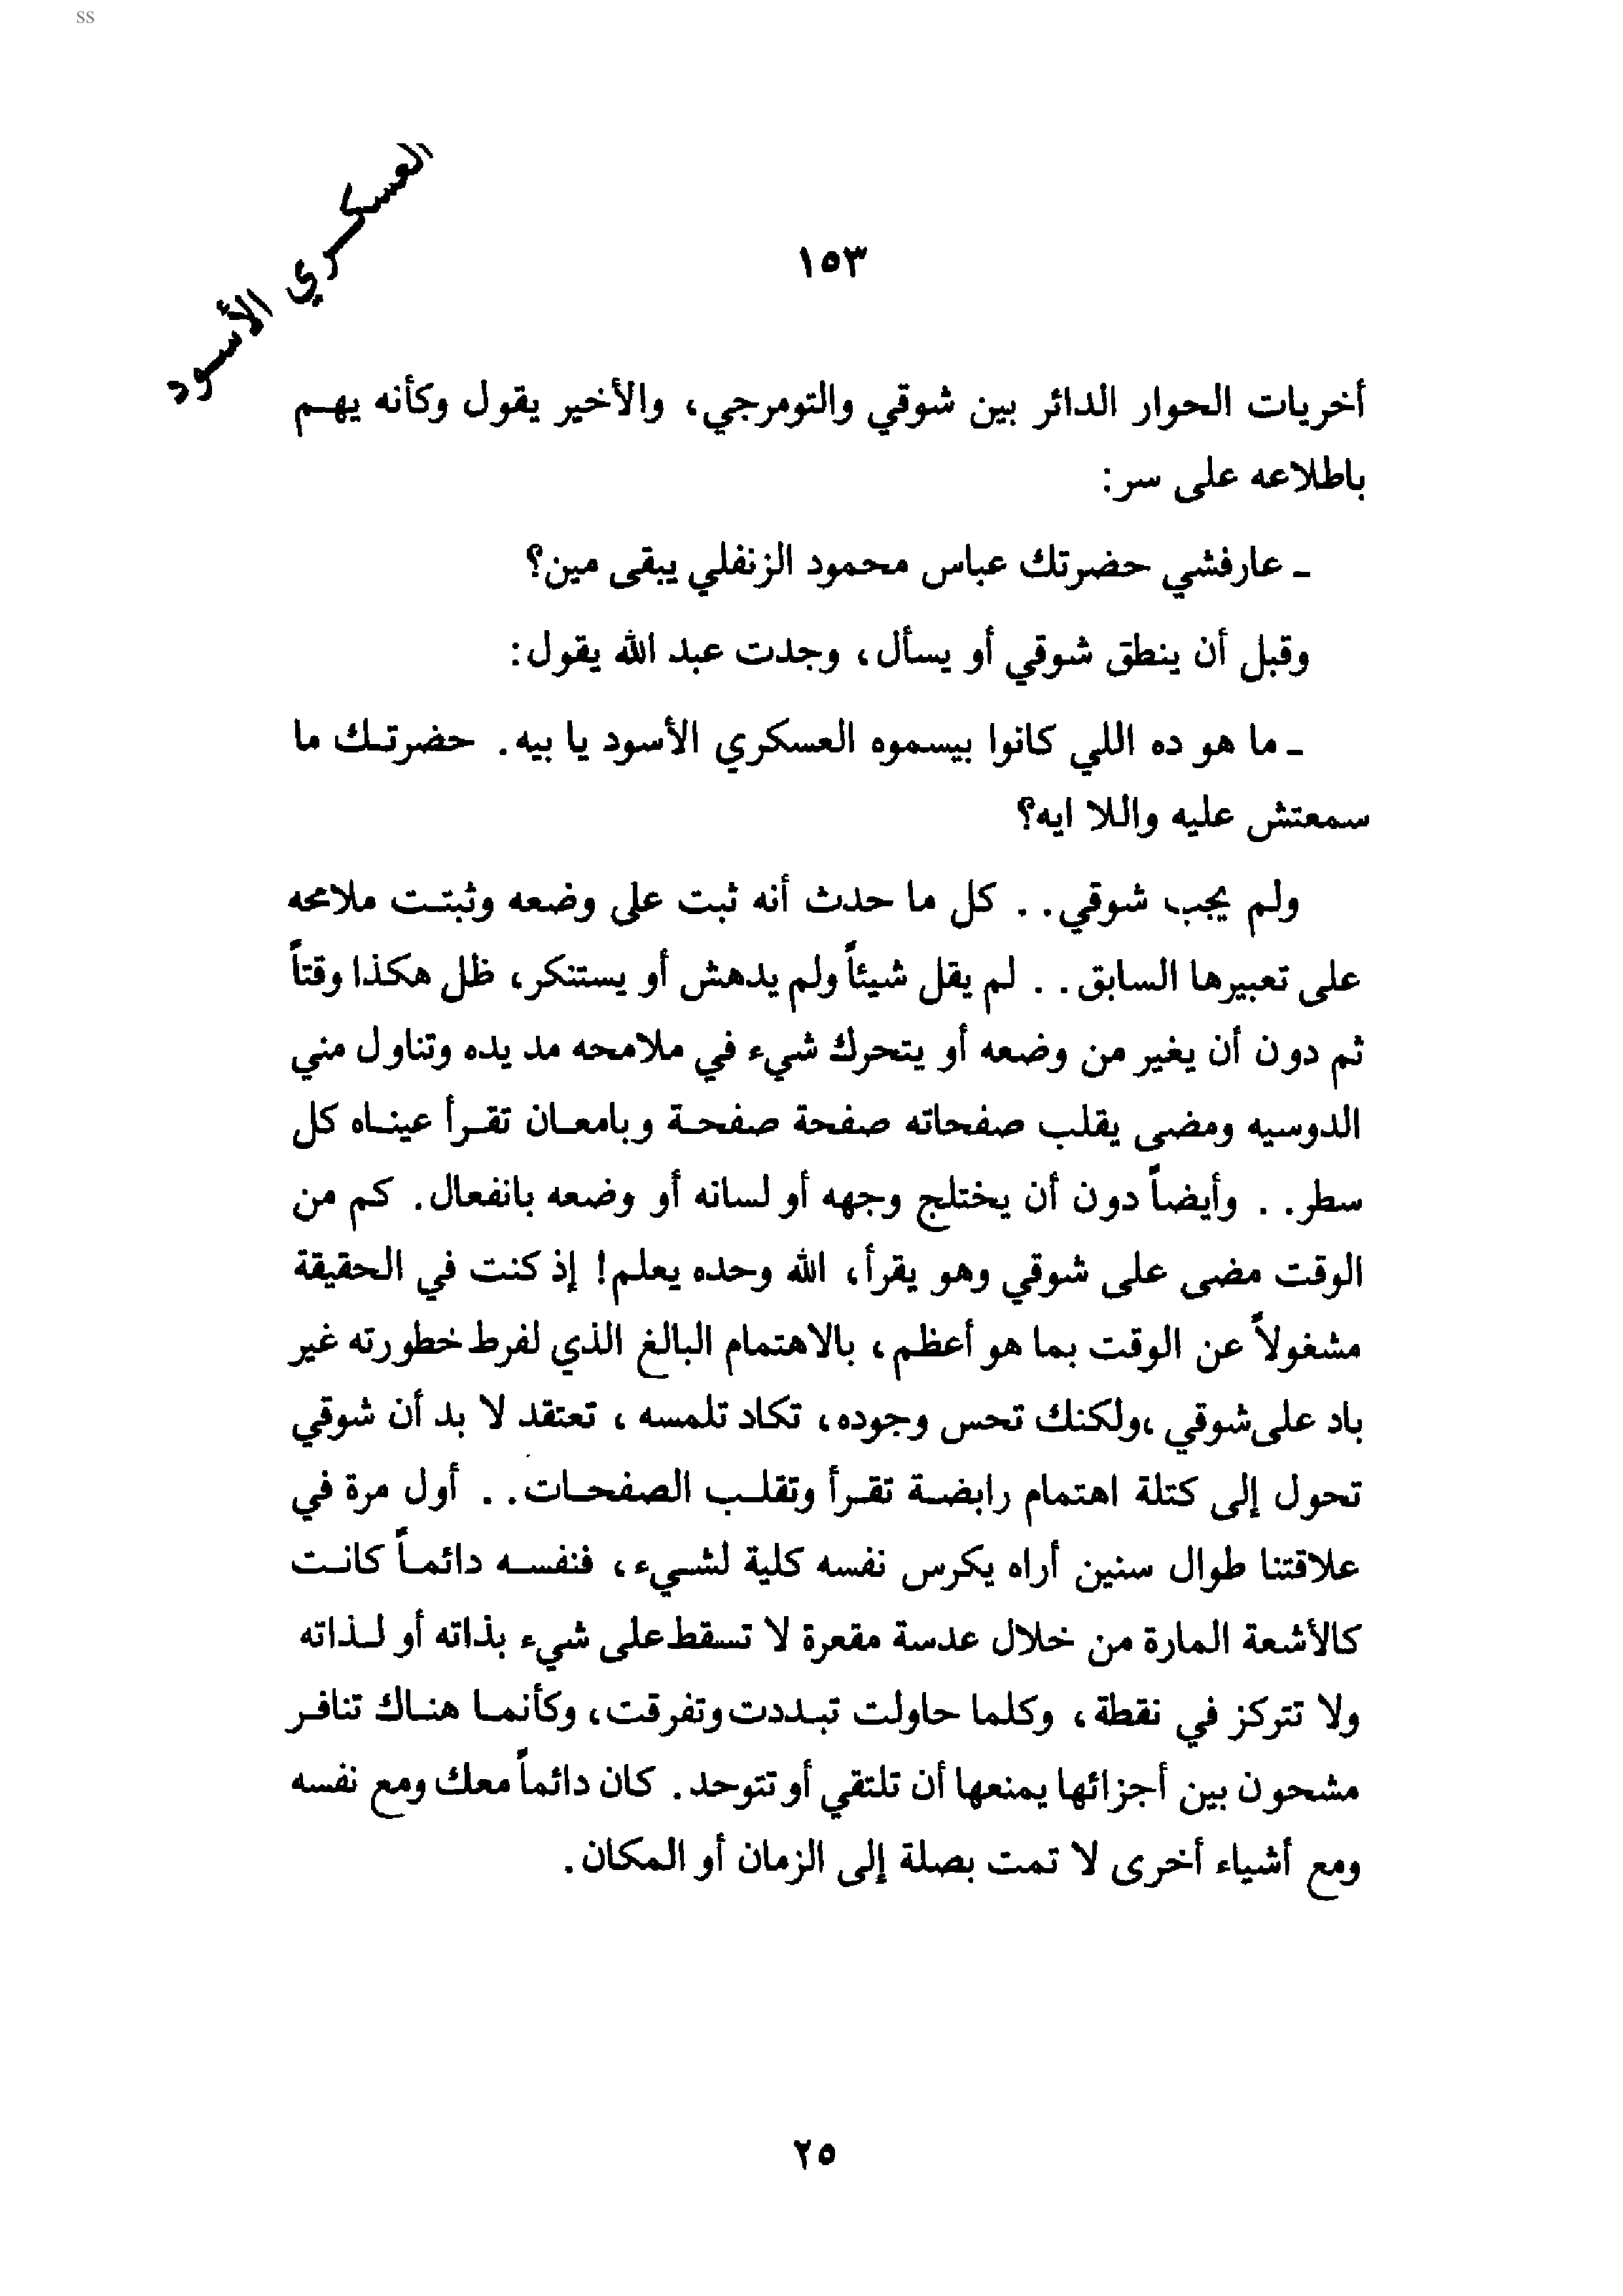 ss
العسكري الأسود
١٥٣
أخريات الحوار الدائر بين شوقي والتومرجي، والأخير يقول وكأنه يهم
باطلاعه على سر:
ـ عارفشي حضرتك عباس محمود الزنفلي يبقى مين؟
وقبل أن ينطق شوقي أو يسأل، وجدت عبد الله يقول:
ـ ما هو ده اللي كانوا بيسموه العسكري الأسود يا بيه. حضرتك ما
سمعتش عليه واللا ايه؟
ولم يجب شوقي.. كل ما حدث أنه ثبت على وضعه وثبتت ملامحه
على تعبيرها السابق.. لم يقل شيئاً ولم يدهش أو يستنكر، ظل هكذا وقتاً
ثم دون أن يغير من وضعه أو يتحرك شيء في ملامحه مد يده وتناول مني
الدوسيه ومضى يقلب صفحاته صفحة صفحة وبامعان تقرأ عيناه كل
سطر.. وأيضاً دون أن يختلج وجهه أو لسانه أو وضعه بانفعال. كم من
الوقت مضى على شوقي وهو يقرأ، الله وحده يعلم! إذ كنت في الحقيقة
مشغولاً عن الوقت بما هو أعظم، بالاهتمام البالغ الذي لفرط خطورته غير
باد على شوقي ،ولكنك تحس وجوده، تكاد تلمسه ، تعتقد لا بد أن شوقي
تحول إلى كتلة اهتمام رابضة تقرأ وتقلب الصفحات.. أول مرة في
علاقتنا طوال سنين أراه يكرس نفسه كلية لشيء، فنفسه دائماً كانت
كالأشعة المارة من خلال عدسة مقعرة لا تسقط على شيء بذاته أو لذاته
ولا تتركز في نقطة، وكلما حاولت تبددت وتفرقت، وكأنما هناك تنافر
مشحون بين أجزائها يمنعها أن تلتقي أو تتوحد. كان دائماً معك ومع نفسه
ومع أشياء أخرى لا تمت بصلة إلى الزمان أو المكان.
٢٥